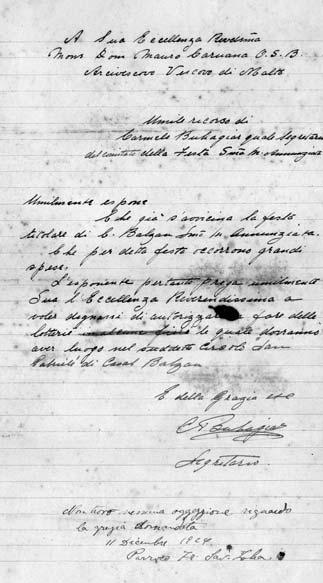 A Sua Eccellenza Revedma
Mons Dom Mauro Caruana O.S.B
Arcivescovo Vescovo di Malta
Umile ricorso di
Carmelo Buhagiar quale Segretario
del comitato della Festa SSma M. Annunziata
Umilmente espone
Che già s'avvicina la festa
titolare di C. Balzan SSma M. Annunziata.
Che per detta festa occorrono grandi
spese.
L'esponente pertanto prega umilmente
Sua l'Eccellenza Reverendissima a
voler degnarsi di autorizzare a fare delle
lotterie le quali dovranno
aver luogo nel suddetto Circolo San
Gabriele di Casal Balzan
E della Grazia etc
C Buhagiar
Segretario.
Non trovo nessuna oggezzione riguardo
la grazia domandata
11 Dicembre 1924
Parroco